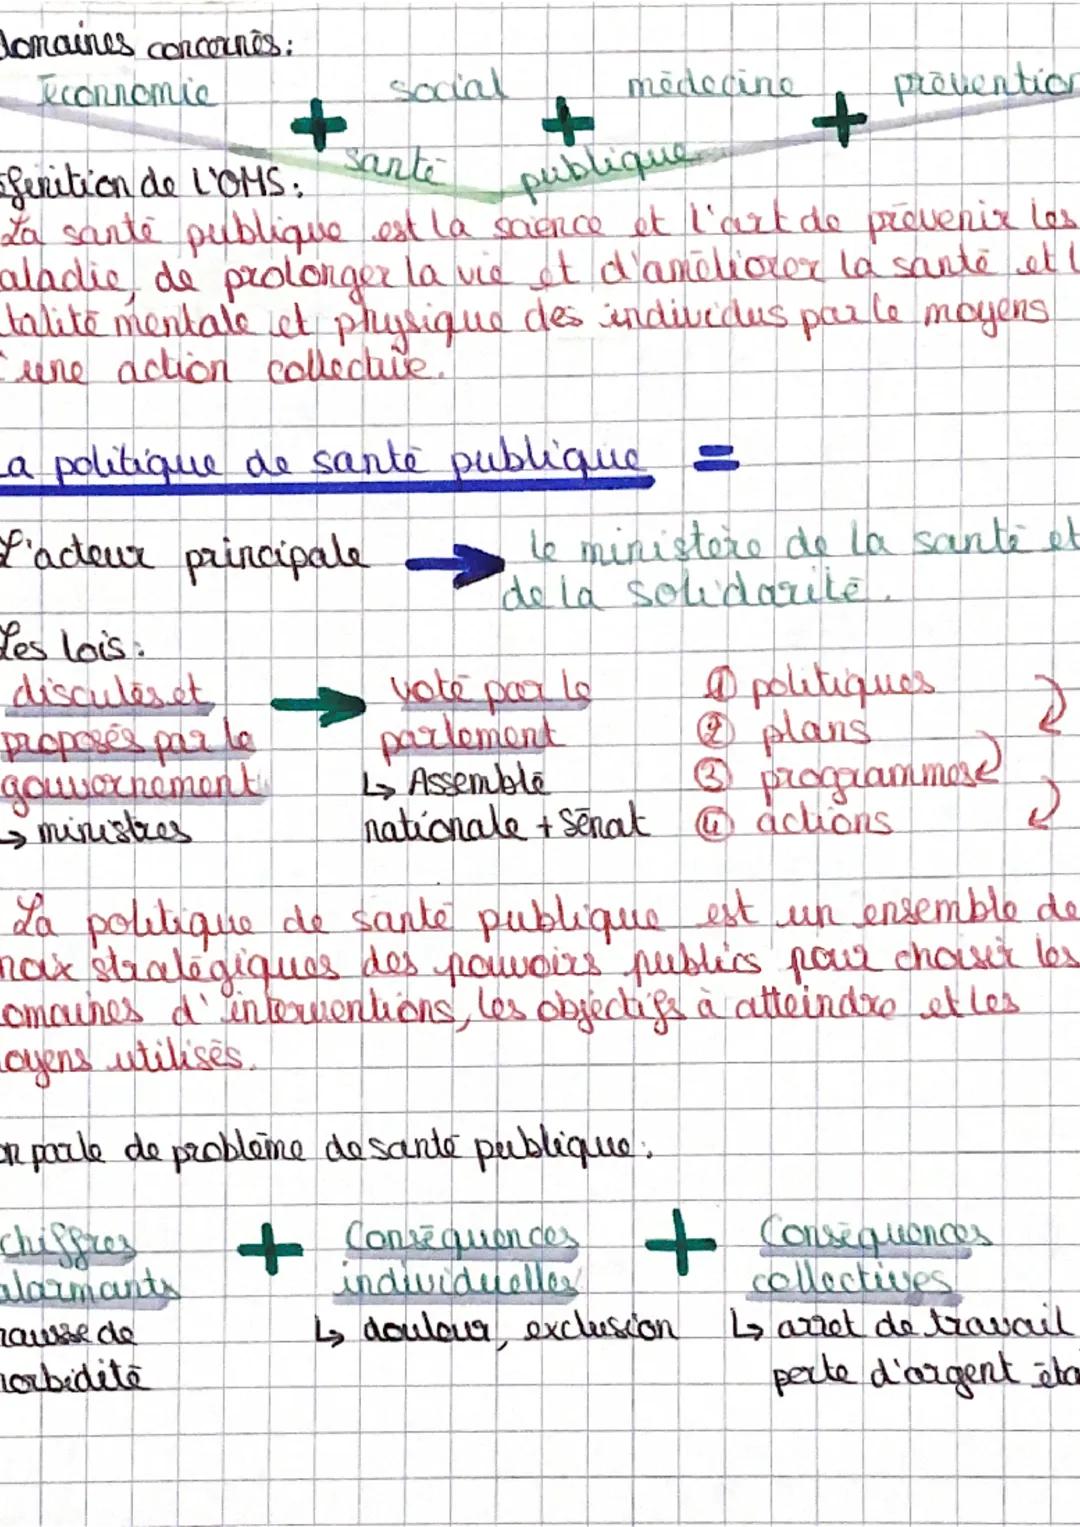 domaines concernés:
économie + social + médecine + prévention
santé publique
éfinition de l'OMS:
La santé publique est la science et l'art de prévenir les
aladie, de prolonger la vie et d'améliorer la santé et l
talité mentale et physique des individus par le moyens
'une action collective.
La politique de santé publique =
L'acteur principale → le ministère de la santé et
de la solidarité.
Les lois:
discutés et → voté par le ① politiques
proposés par le parlement ② plans
gouvernement ↳ Assemblé ③ programmes
→ ministres nationale + Sénat ④ actions
La politique de santé publique est un ensemble de
hoix stratégiques des pouvoirs publics pour choisir les
omaines d'interventions, les objectifs à atteindre et les
oyens utilisés.
on parle de problème de santé publique:
chiffres + Conséquences + Conséquences
alarmants individuelles collectives
hausse de ↳ douleur, exclusion ↳ arret de travail
morbidité perte d'argent éta